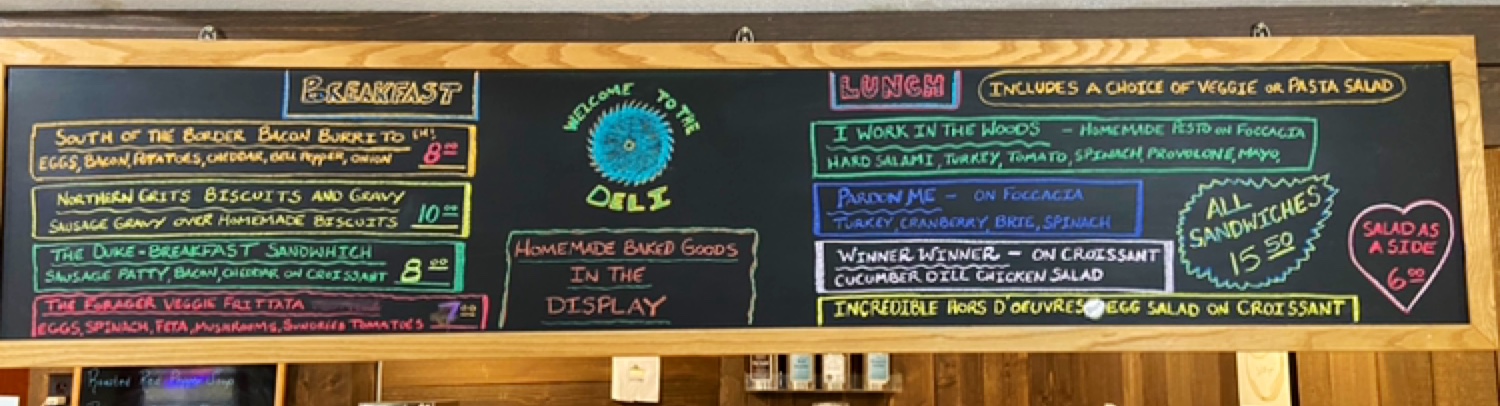 BREAKFAST
SOUTH OF THE BORDER BACON BURRITO EH!
EGGS, BACON, POTATOES, CHEDDAR, BELL PEPPER, ONION 8.00
NORTHERN GRITS BISCUITS AND GRAVY
SAUSAGE GRAVY OVER HOMEMADE BISCUITS 10.00
THE DUKE - BREAKFAST SANDWHICH
SAUSAGE PATTY, BACON, CHEDDAR ON CROISSANT 8.00
THE FORAGER VEGGIE FRITTATA
EGGS, SPINACH, FETA, MUSHROOMS, SUNDRIED TOMATOES 7.00
WELCOME TO THE
DELI
HOMEMADE BAKED GOODS
IN THE
DISPLAY
LUNCH
INCLUDES A CHOICE OF VEGGIE OR PASTA SALAD
I WORK IN THE WOODS - HOMEMADE PESTO ON FOCCACIA
HARD SALAMI, TURKEY, TOMATO, SPINACH, PROVOLONE, MAYO,
PARDON ME - ON FOCCACIA
TURKEY, CRANBERRY, BRIE, SPINACH
WINNER WINNER - ON CROISSANT
CUCUMBER DILL CHICKEN SALAD
INCREDIBLE HORS D'OEUVRES EGG SALAD ON CROISSANT
ALL
SANDWICHES
15.50
SALAD AS
A SIDE
6.00
Roasted Red Pepper Soup